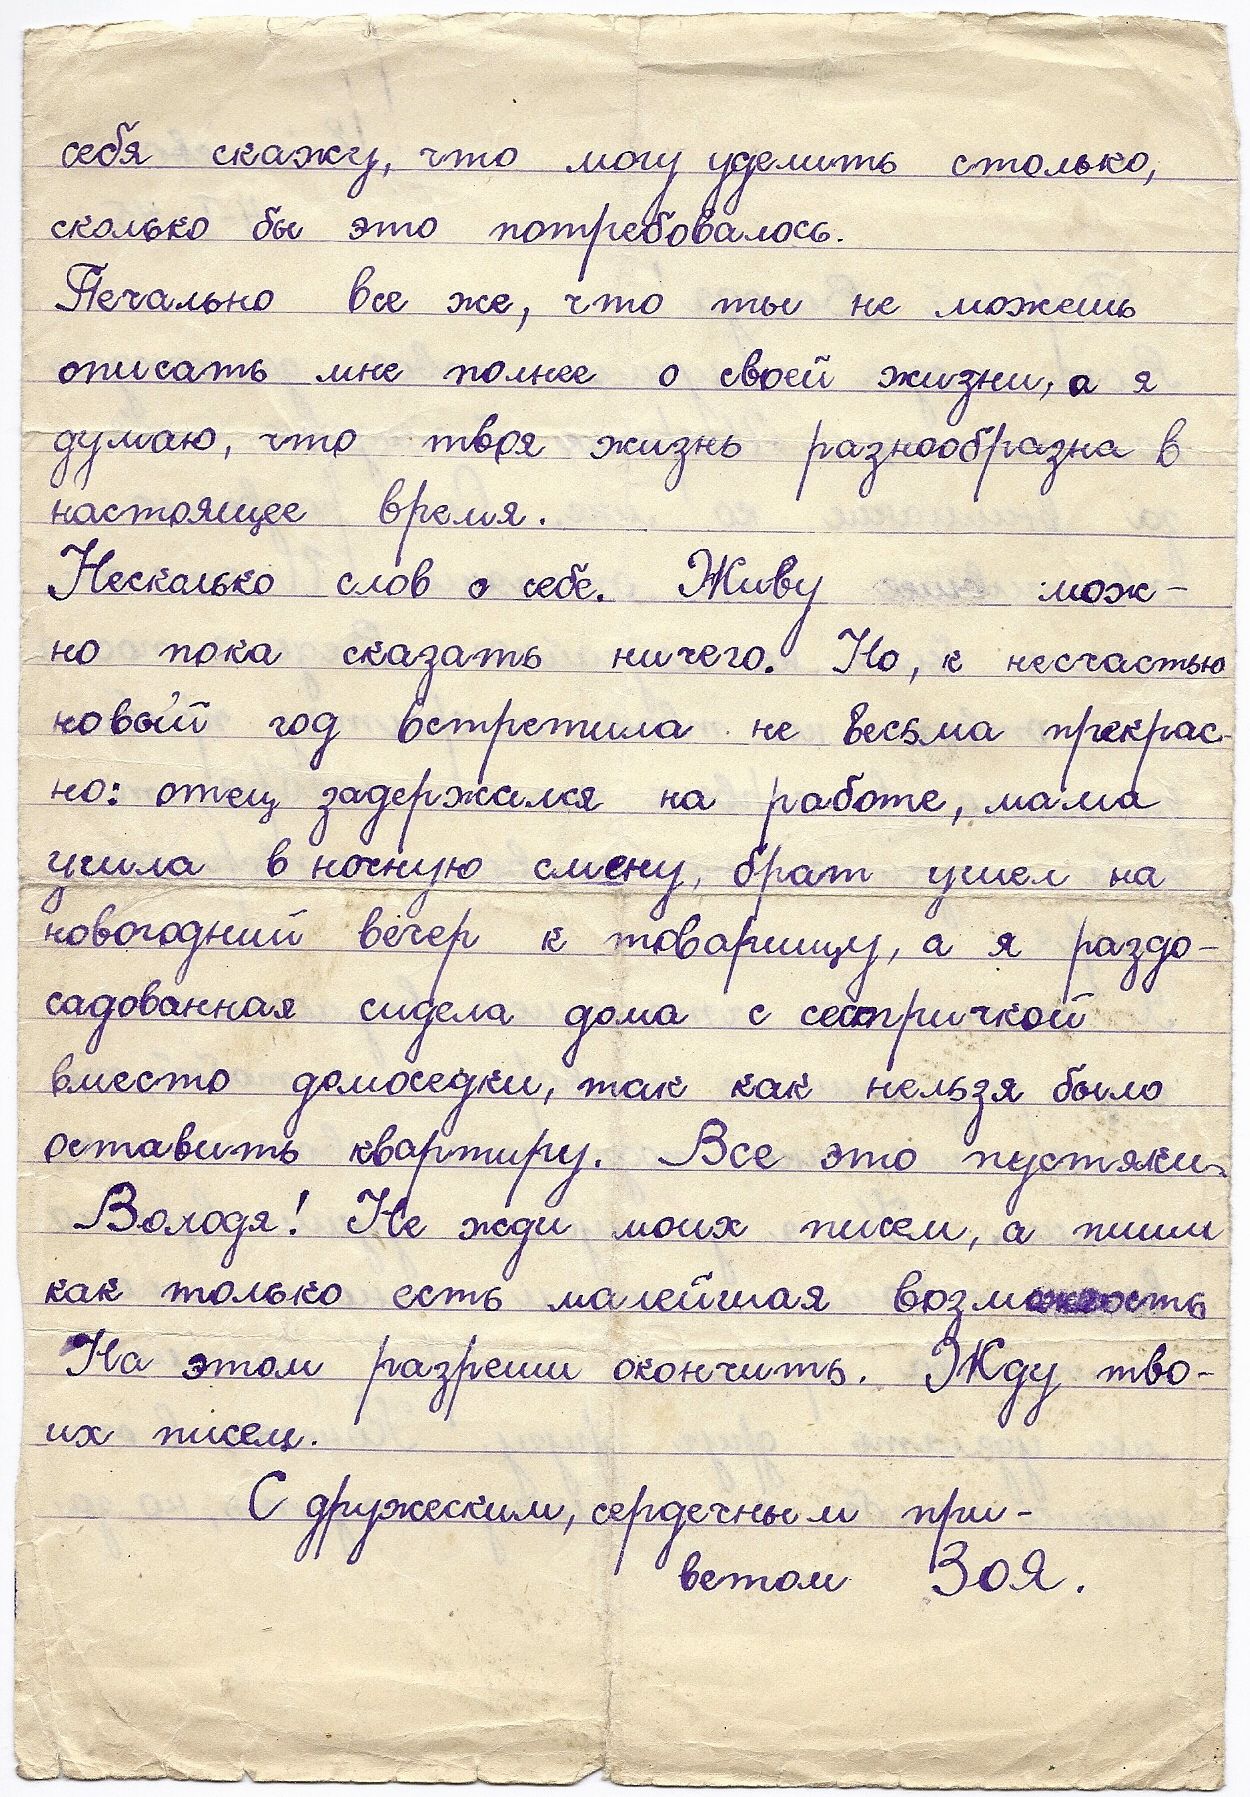 себя скажу, что могу уделить столько,
сколько бы это потребовалось.
Печально все же, что ты не можешь
описать мне полнее о своей жизни, а я
думаю, что твоя жизнь разнообразна в
настоящее время.
Несколько слов о себе. Живу мож-
но пока сказать ничего. Но, к несчастью
новый год встретила не весьма прекрас-
но: отец задержался на работе, мама
ушла в ночную смену, брат ушел на
новогодний вечер к товарищу, а я раздо-
садованная сидела дома с сестричкой
вместо домоседки, так как нельзя было
оставить квартиру. Все это пустяки.
Володя! Не жди моих писем, а пиши
как только есть малейшая возможность
На этом разреши окончить. Жду тво-
их писем.
С дружеским, сердечным при-
ветом Зоя.